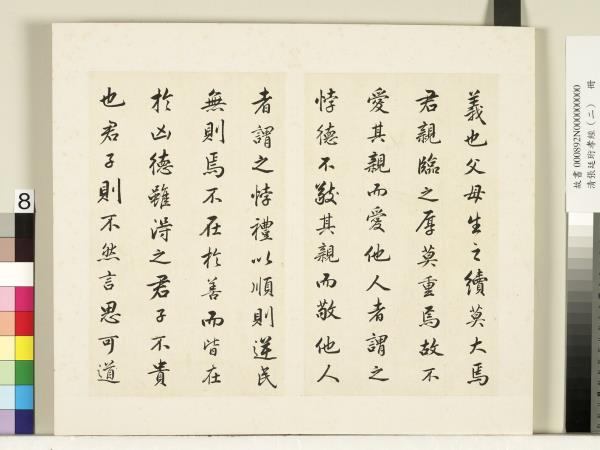 義也父母生之續莫大焉
君親臨之厚莫重焉故不
愛其親而愛他人者謂之
悖德不敬其親而敬他人
者謂之悖禮以順則逆民
無則焉不在於善而皆在
於凶德雖得之君子不貴
也君子則不然言思可道
故書 000892N000000000
清張廷珩孝經(二) 冊
8